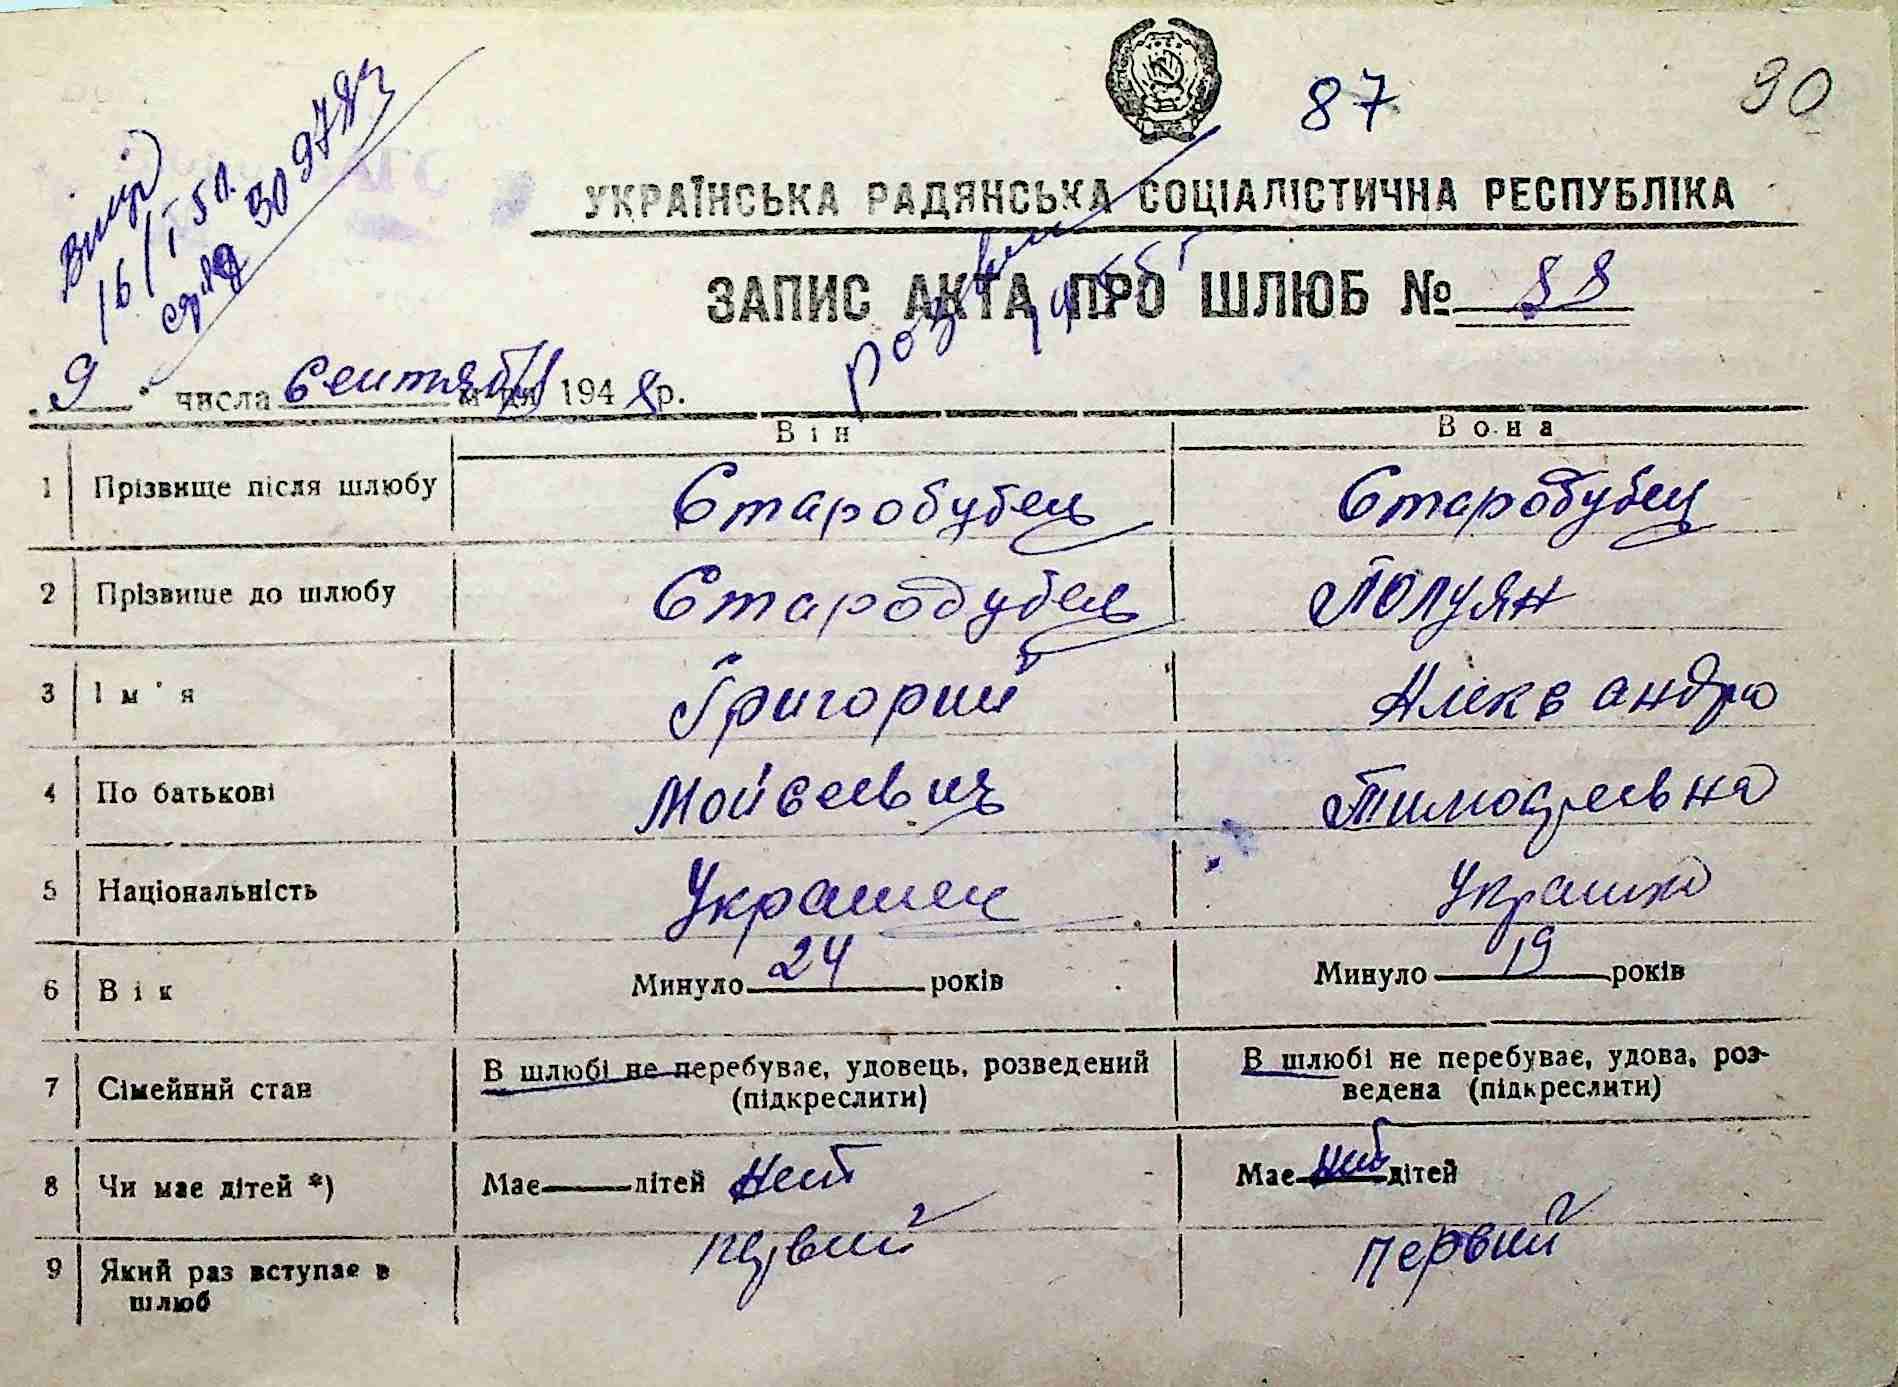 87
90
16/I 50.
УКРАЇНСЬКА РАДЯНСЬКА СОЦІАЛІСТИЧНА РЕСПУБЛІКА
ЗАПИС АКТА ПРО ШЛЮБ № 88
„9" числа Сентября м-ця 1948 р.
Він Вона
1 Прізвище після шлюбу Стародубец Стародубец
2 Прізвище до шлюбу Стародубец Полуян
3 Ім'я Григорий Александра
4 По батькові Мойсеевич Тимофеевна
5 Національність Украинец Украинка
6 Вік Минуло 24 років Минуло 19 років
7 Сімейний став В шлюбі не перебуває, удовець, розведений В шлюбі не перебуває, удова, роз-
(підкреслити) ведена (підкреслити)
8 Чи має дітей *) Має дітей Нет Має нет дітей
9 Який раз вступає в первий первий
шлюб